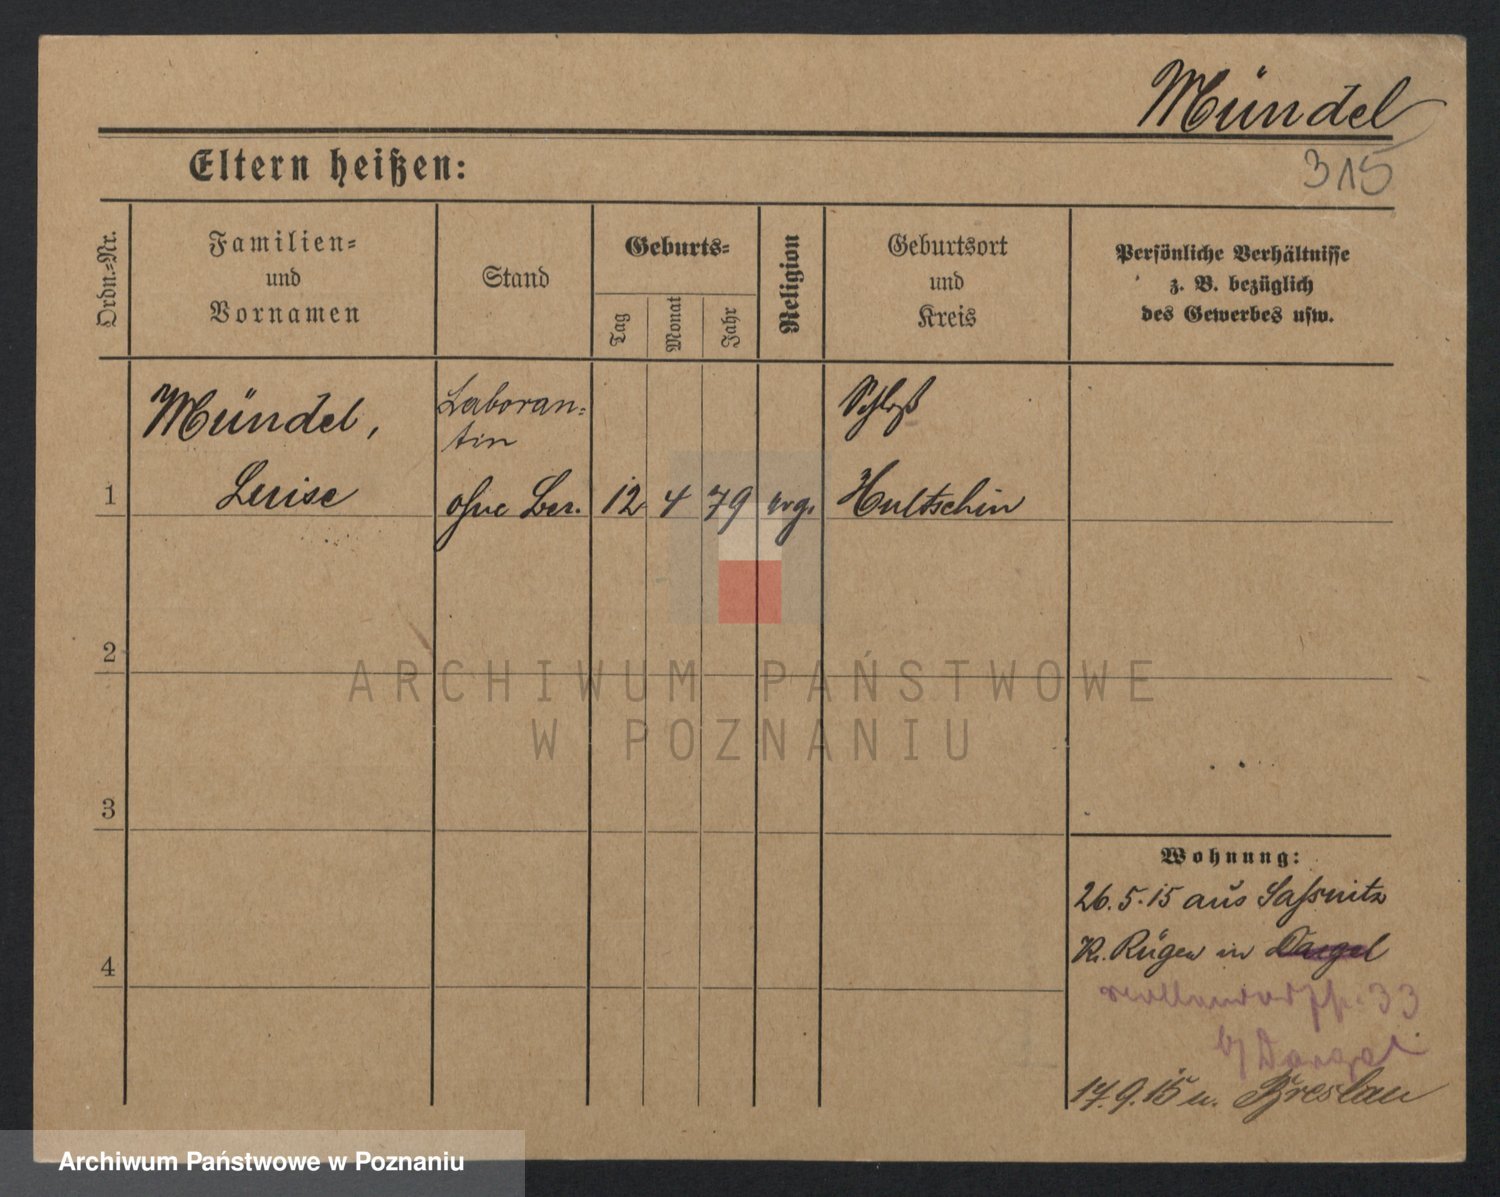 Mündel
315
Eltern heißen:
Ordn.-Nr.
Familien-
und
Vornamen
Stand
Geburts-
Tag
Monat
Jahr
Religion
Geburtsort
und
Kreis
Persönliche Verhältnisse
z. B. bezüglich
des Gewerbes usw.
Mündel,
Laboran-
tin
Schloß
1
Luise
ohne Ber.
12
4
79
evg.
Hultschin
2
3
4
Wohnung:
26.5.15 aus Sassnitz
Kr. Rügen in Dargel
33
b/ Dargel
17.9.15 n. Breslau
ARCHIWUM PAŃSTWOWE
W POZNANIU
Archiwum Państwowe w Poznaniu